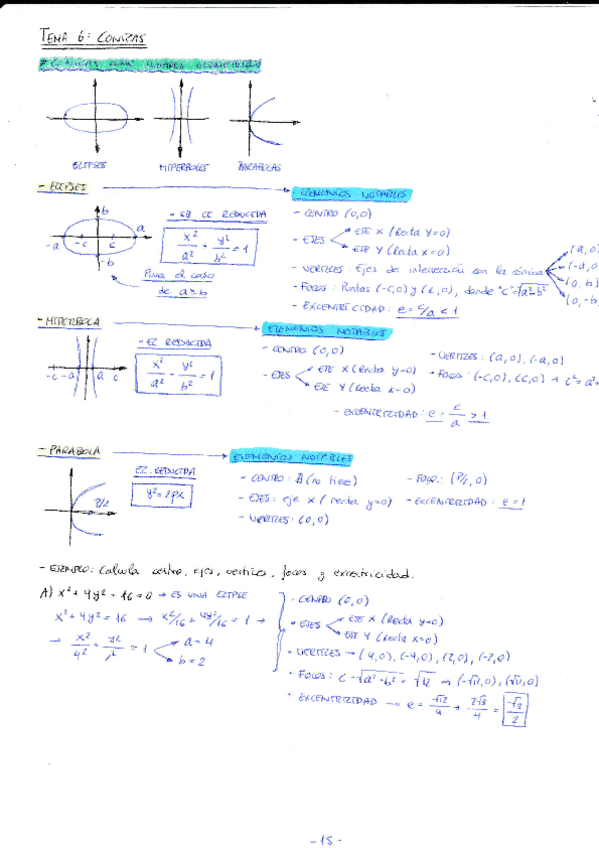 TEMA 6: CONICAS
ELIPSES HIPERBOLES PARABOLAS
- ELIPSES → ELEMENTOS NOTABLES
b
-a -c c a
-b
- EC REDUCIDA
x²/a² + y²/b² = 1
Para el caso
de a≥b
- CENTRO (0,0)
- EJES
EJE X (Recta y=0)
EJE Y (Recta x=0)
- VERTICES: Ejes de intersección con la cónica
(a,0)
(-a,0)
(0,b)
(0,-b
- FOCOS: Puntos (-c,0) y (c,0), donde "c"=√a²-b²
- EXCENTRICIDAD: e = c/a < 1
- HIPERBOLA → ELEMENTOS NOTABLES
-c -a a c
EC REDUCIDA
x²/a² - y²/b² = 1
- CENTRO (0,0)
- EJES
EJE X (Recta y=0)
EJE Y (Recta x=0)
- VERTICES: (a,0), (-a,0)
- FOCOS: (-c,0), (c,0) → c²=a²+
- EXCENTRICIDAD: e = c/a > 1
- PARABOLA → ELEMENTOS NOTABLES
P/2
EC. REDUCIDA
y²=2px
- CENTRO: ∄ (no tiene)
- EJES: eje x (recta y=0)
- VERTICES: (0,0)
- FOCO: (P/2,0)
- EXCENTRICIDAD: e=1
- EJEMPLO: Calcula centro, ejes, vertices, focos y excentricidad.
A) x²+4y²-16=0 → ES UNA ELIPSE
x²+4y²=16 → x²/16 + 4y²/16 = 1 →
→ x²/4² + y²/2² = 1
a=4
b=2
- CENTRO (0,0)
• EJES
EJE X (Recta y=0)
EJE Y (Recta x=0)
• VERTICES → (4,0), (-4,0), (2,0), (-2,0)
• FOCOS: c=√a²-b² = √12 → (-√12,0), (√12,0)
• EXCENTRICIDAD → e = √12/4 + 2√3/4 = √3/2
-15-